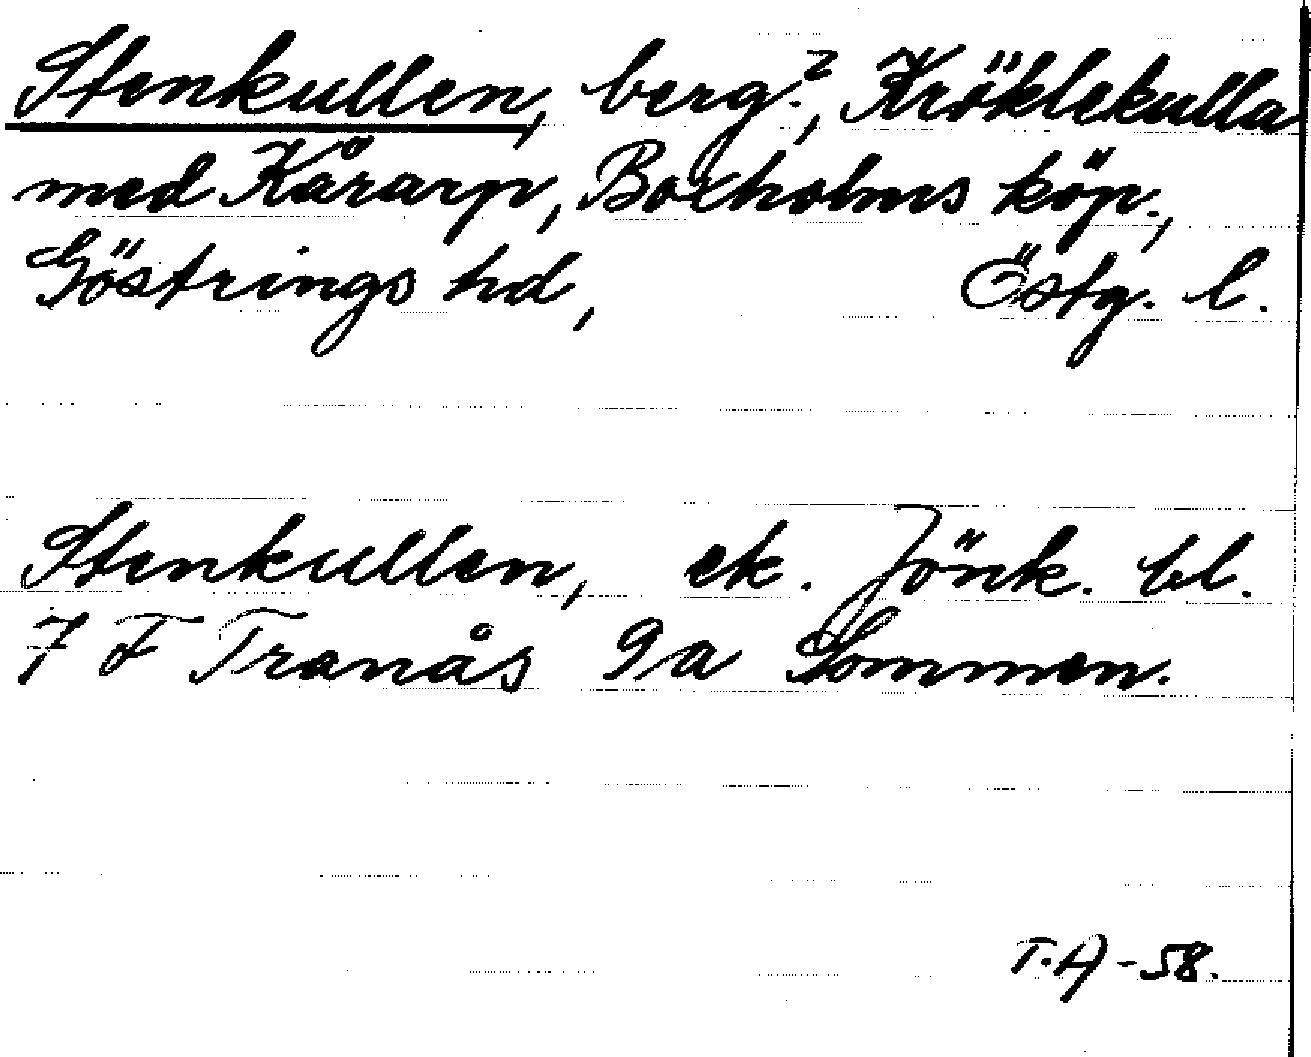 Stenkullen, berg?, Kröklekulla
med Kårarp, Boxholms köp.,
Göstrings hd, Östg. l.
Stenkullen, ek. Jönk. bl.
7 F Tranås 9a Sommen.
T.A -58.